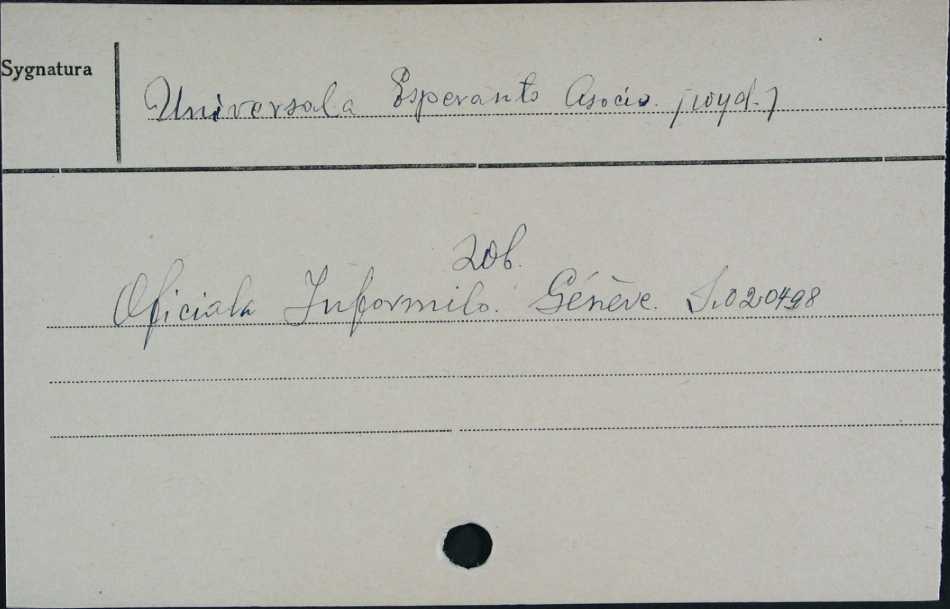 Sygnatura
Universala Esperanto Asocio. /wyd./
zob.
Oficiala Informilo. Génève. S.020498